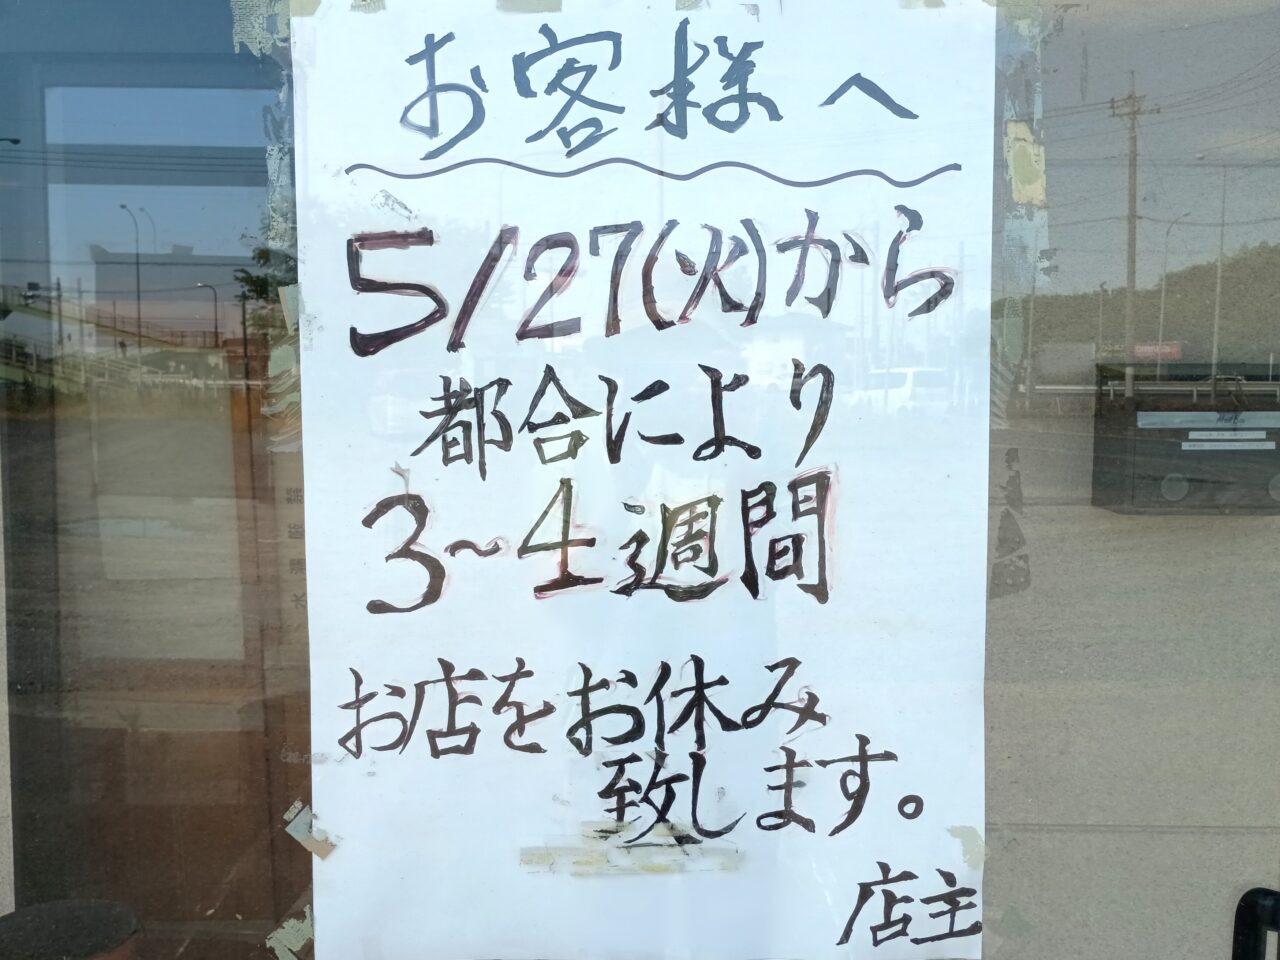 お客様へ
5/27(火)から
都合により
3~4週間
お店をお休み
致します。
店主